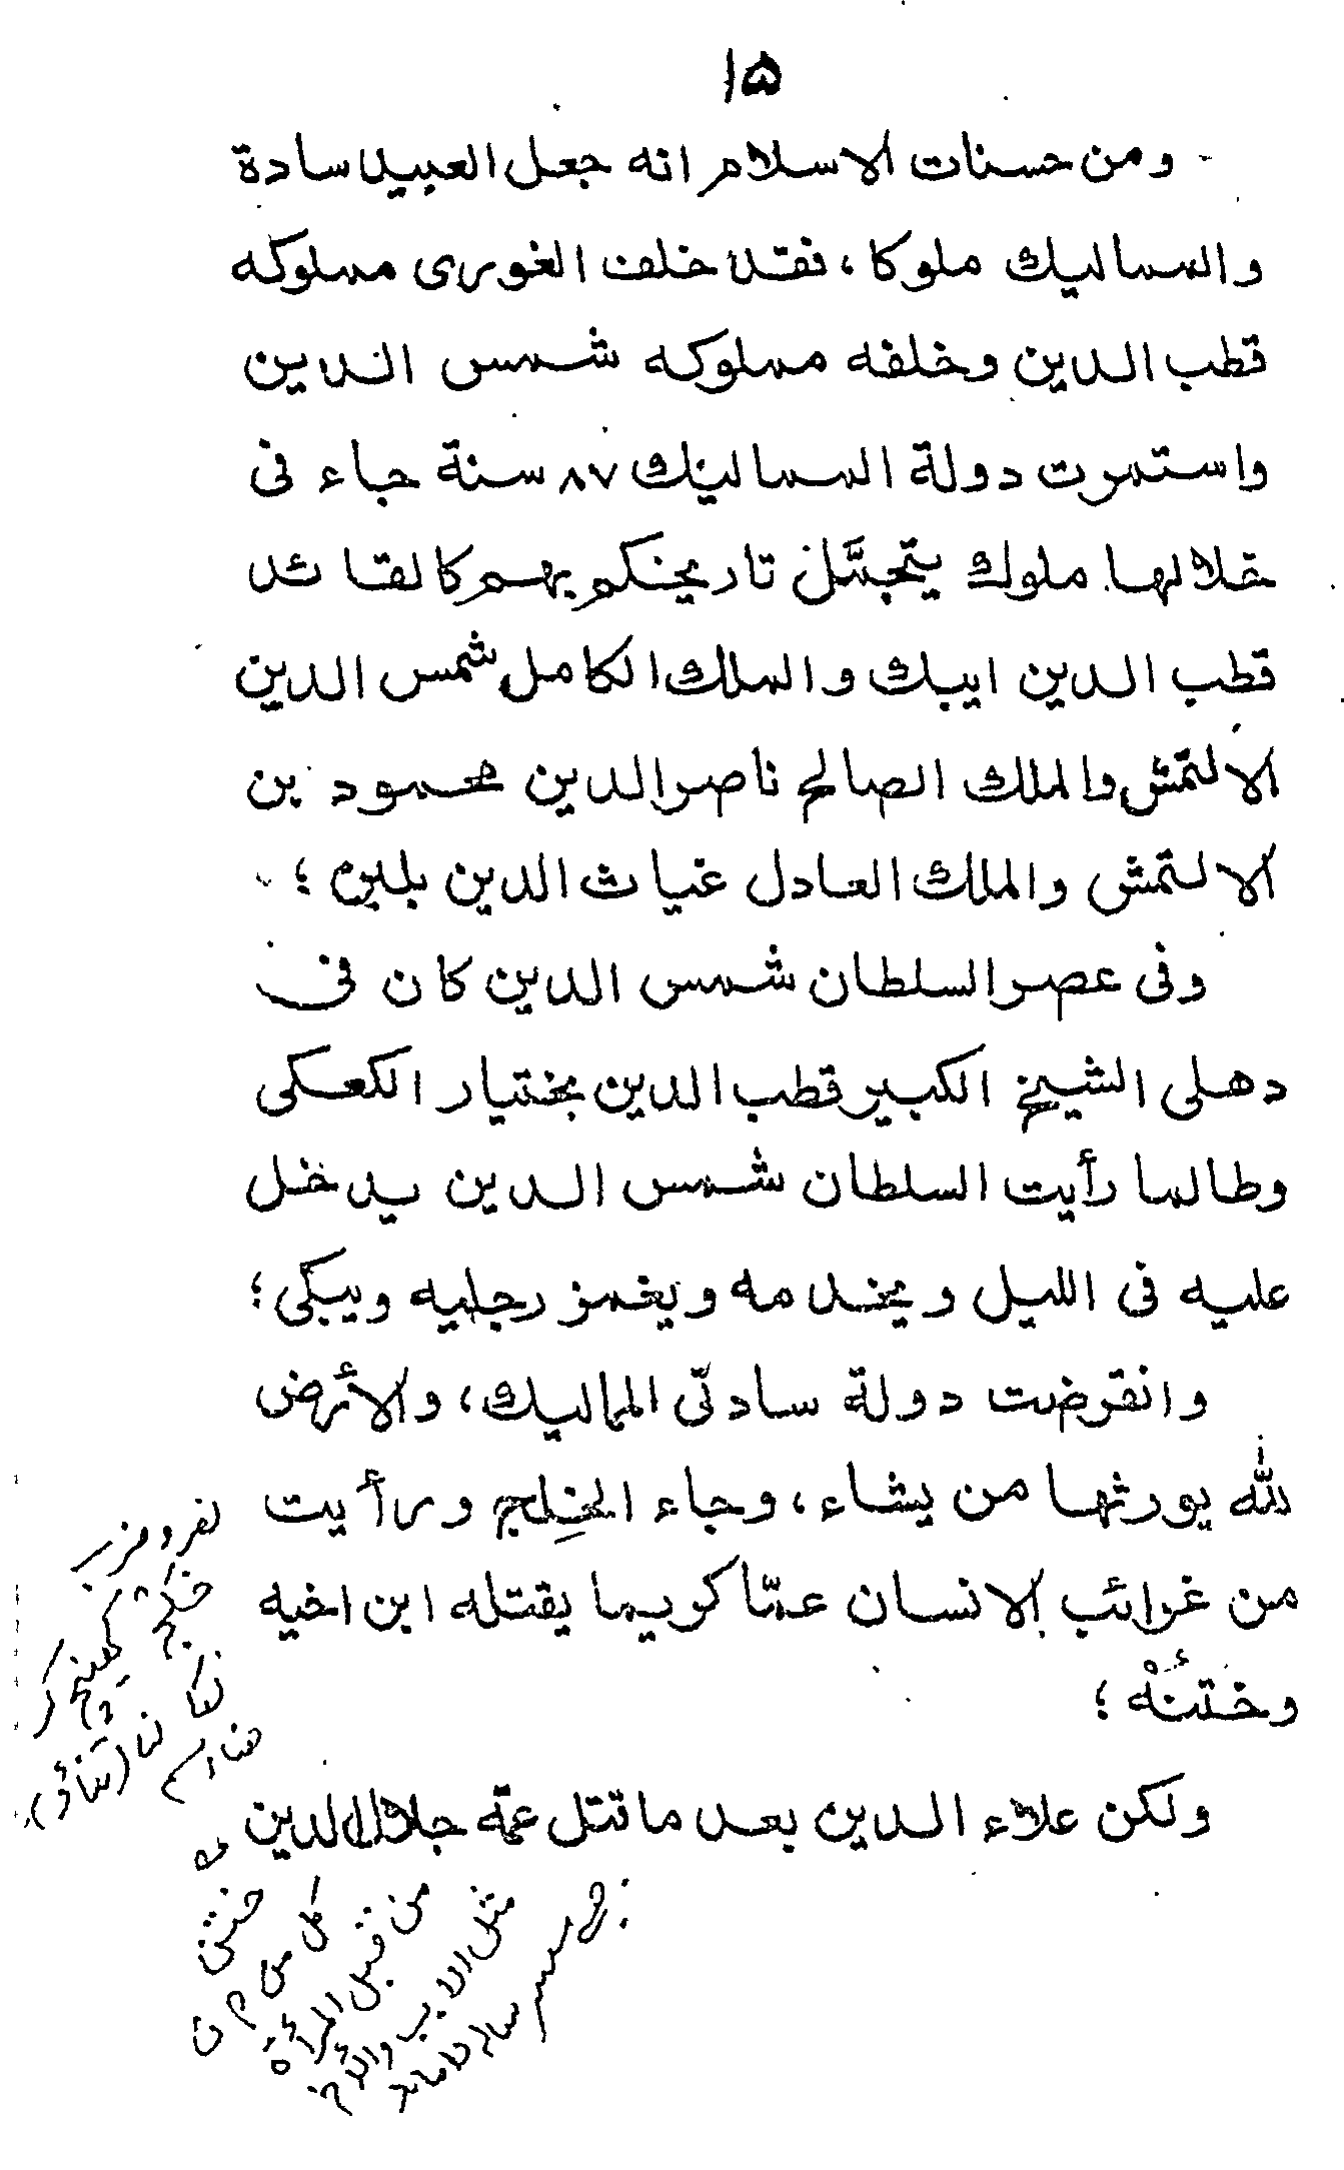 ۱۵
ومن حسنات الاسلام انه جعل العبيد سادة
والمماليك ملوكا ، فقد خلف الغورى مملوكه
قطب الدين وخلفه مملوكه شمس الدين
واستمرت دولة المماليك ۸۷ سنة جاء فى
خلالها ملوك يتجمَّل تاريخكم بهم كالقائد
قطب الدين ايبك والملك الكامل شمس الدين
الالتمش والملك الصالح ناصر الدين محمود بن
الالتمش والملك العادل غياث الدين بلبن ؛
وفى عصر السلطان شمس الدين كان فى
دهلى الشيخ الكبير قطب الدين بختيار الكعكى
وطالما رأيت السلطان شمس الدين يدخل
عليه فى الليل ويخدمه ويغمز رجليه ويبكى ؛
وانقرضت دولة سادتى المماليك ، والأرض
لله يورثها من يشاء ، وجاء الخِلج ورأيت
من غرائب الانسان عمّا كريما يقتله ابن اخيه
وختنُهْ ؛
ولكن علاء الدين بعد ما قتل عمّه جلال الدين
خلج
كھینچ کر
نکالنا
ختن
كل من
من قبل المرأة
مثل الاب والأخ